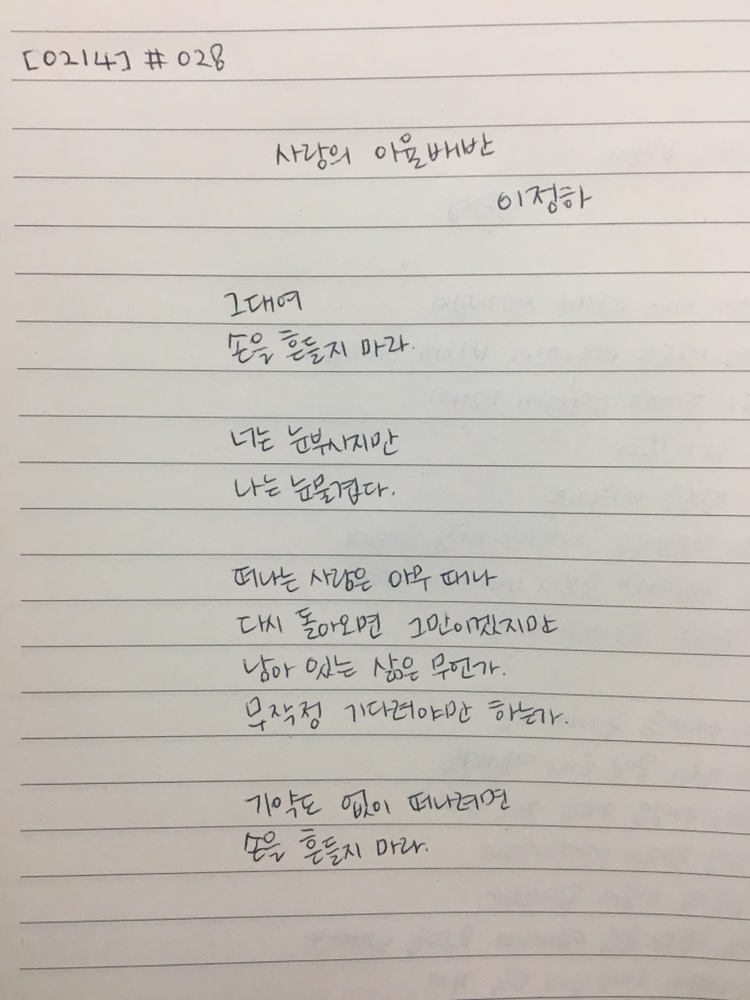 [0214] # 028
사랑의 이율배반
이정하
그대여
손을 흔들지 마라.
너는 눈부시지만
나는 눈물겹다.
떠나는 사람은 아무 때나
다시 돌아오면 그만이겠지만
남아 있는 삶은 무언가.
무작정 기다려야만 하는가.
기약도 없이 떠나려면
손을 흔들지 마라.